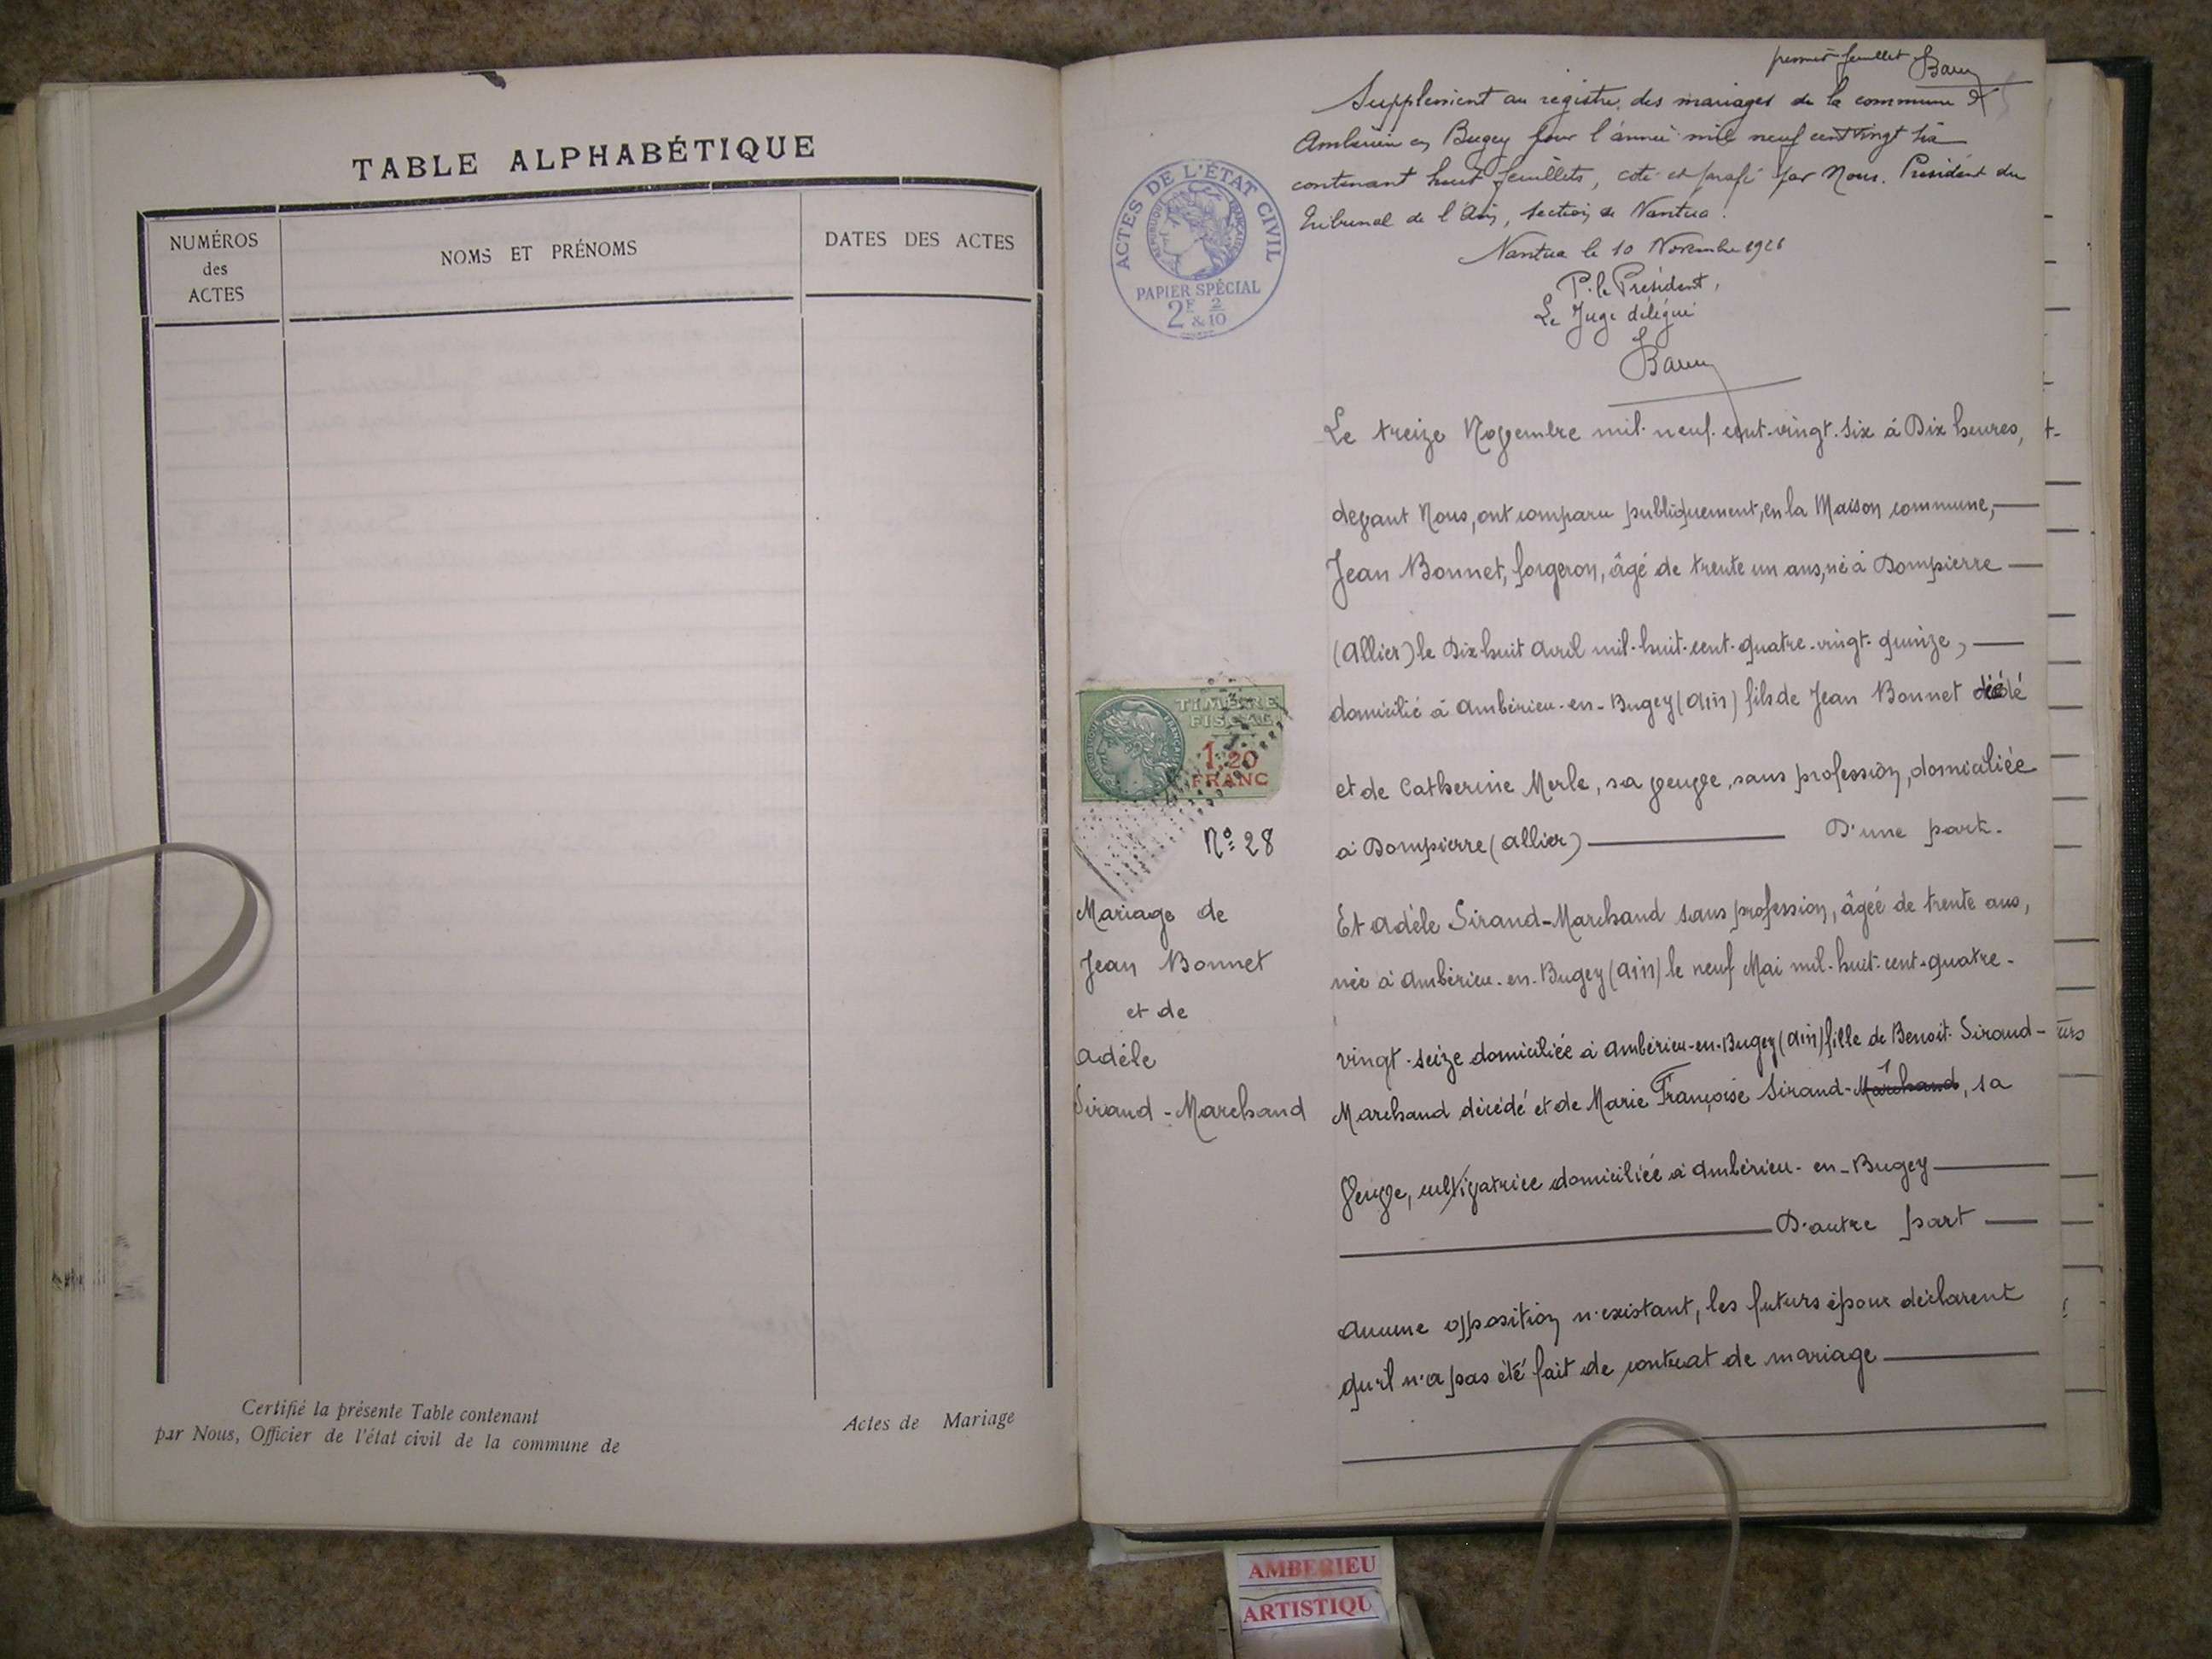 TABLE ALPHABÉTIQUE
NUMÉROS
des
ACTES
NOMS ET PRÉNOMS
DATES DES ACTES
Certifié la présente Table contenant
par Nous, Officier de l'état civil de la commune de
Actes de Mariage
premier feuillet
Supplément au registre des mariages de la commune d'
Ambérieu en Bugey pour l'année mil neuf cent vingt six
contenant huit feuillets, coté et parafé par Nous. Président du
Tribunal de l'Ain, section de Nantua.
Nantua le 10 Novembre 1926
P. le Président,
Le Juge délégué
ACTES DE L'ÉTAT CIVIL
RÉPUBLIQUE FRANÇAISE
PAPIER SPÉCIAL
2F & 2/10
Le treize Novembre mil-neuf-cent-vingt-six à Dix heures,
devant Nous, ont comparu publiquement, en la Maison commune,
Jean Bonnet, forgeron, âgé de trente un ans, né à Dompierre
(Allier) le Dix huit Avril mil-huit-cent-quatre-vingt-quinze,
domicilié à Ambérieu-en-Bugey (Ain) fils de Jean Bonnet décédé
et de Catherine Merle, sa veuve, sans profession, domiciliée
à Dompierre (Allier) D'une part.
Et Adèle Sirand-Marchand sans profession, âgée de trente ans,
née à Ambérieu-en-Bugey (Ain) le neuf Mai mil-huit-cent-quatre-
vingt-seize domiciliée à Ambérieu-en-Bugey (Ain) fille de Benoit Sirand-
Marchand décédé et de Marie Françoise Sirand-Marchand, sa
veuve, cultivatrice domiciliée à Ambérieu-en-Bugey
D'autre part
Aucune opposition n'existant, les futurs époux déclarent
qu'il n'a pas été fait de contrat de mariage
TIMBRE
FISCAL
1,20
FRANC
No 28
Mariage de
Jean Bonnet
et de
Adèle
Sirand-Marchand
AMBERIEU
ARTISTIQU